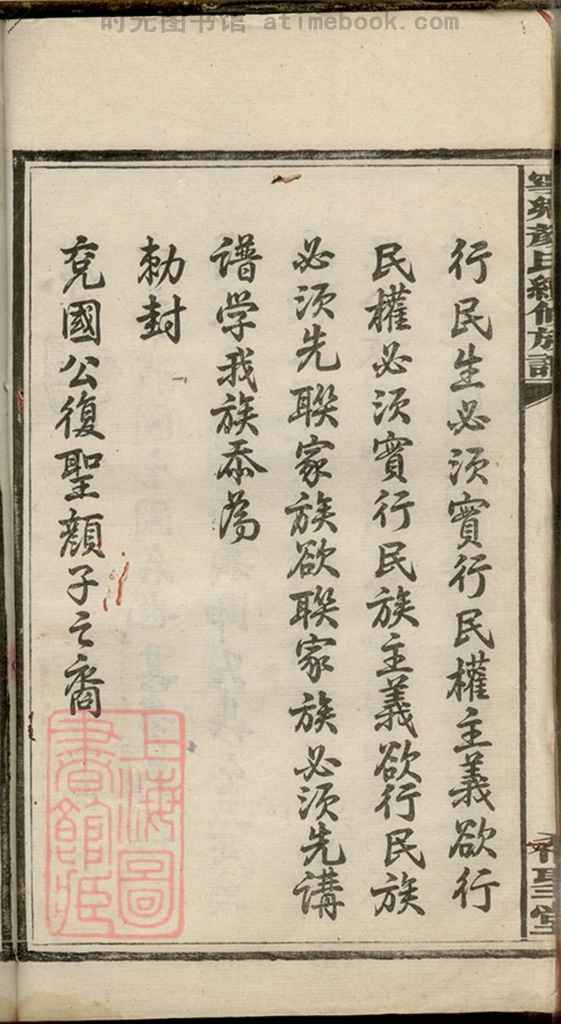 时光图书馆 atimebook.com
行民生必须實行民權主義欲行
民權必须實行民族主義欲行民族
必须先聨家族欲聨家族必须先講
谱学我族忝為
勅封
兗國公復聖顔子之裔
上海圖
書館臧
顔氏續修族譜
三堂